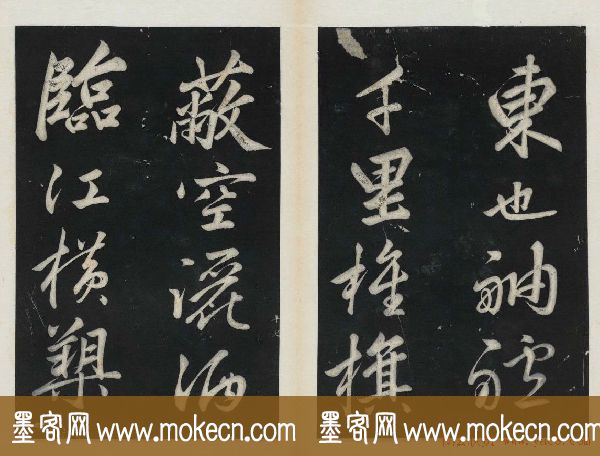 東也舳艫
千里旌旗
蔽空灑酒
臨江橫槊
墨客网 www.mokecn.com 墨客网 www.mokecn.com